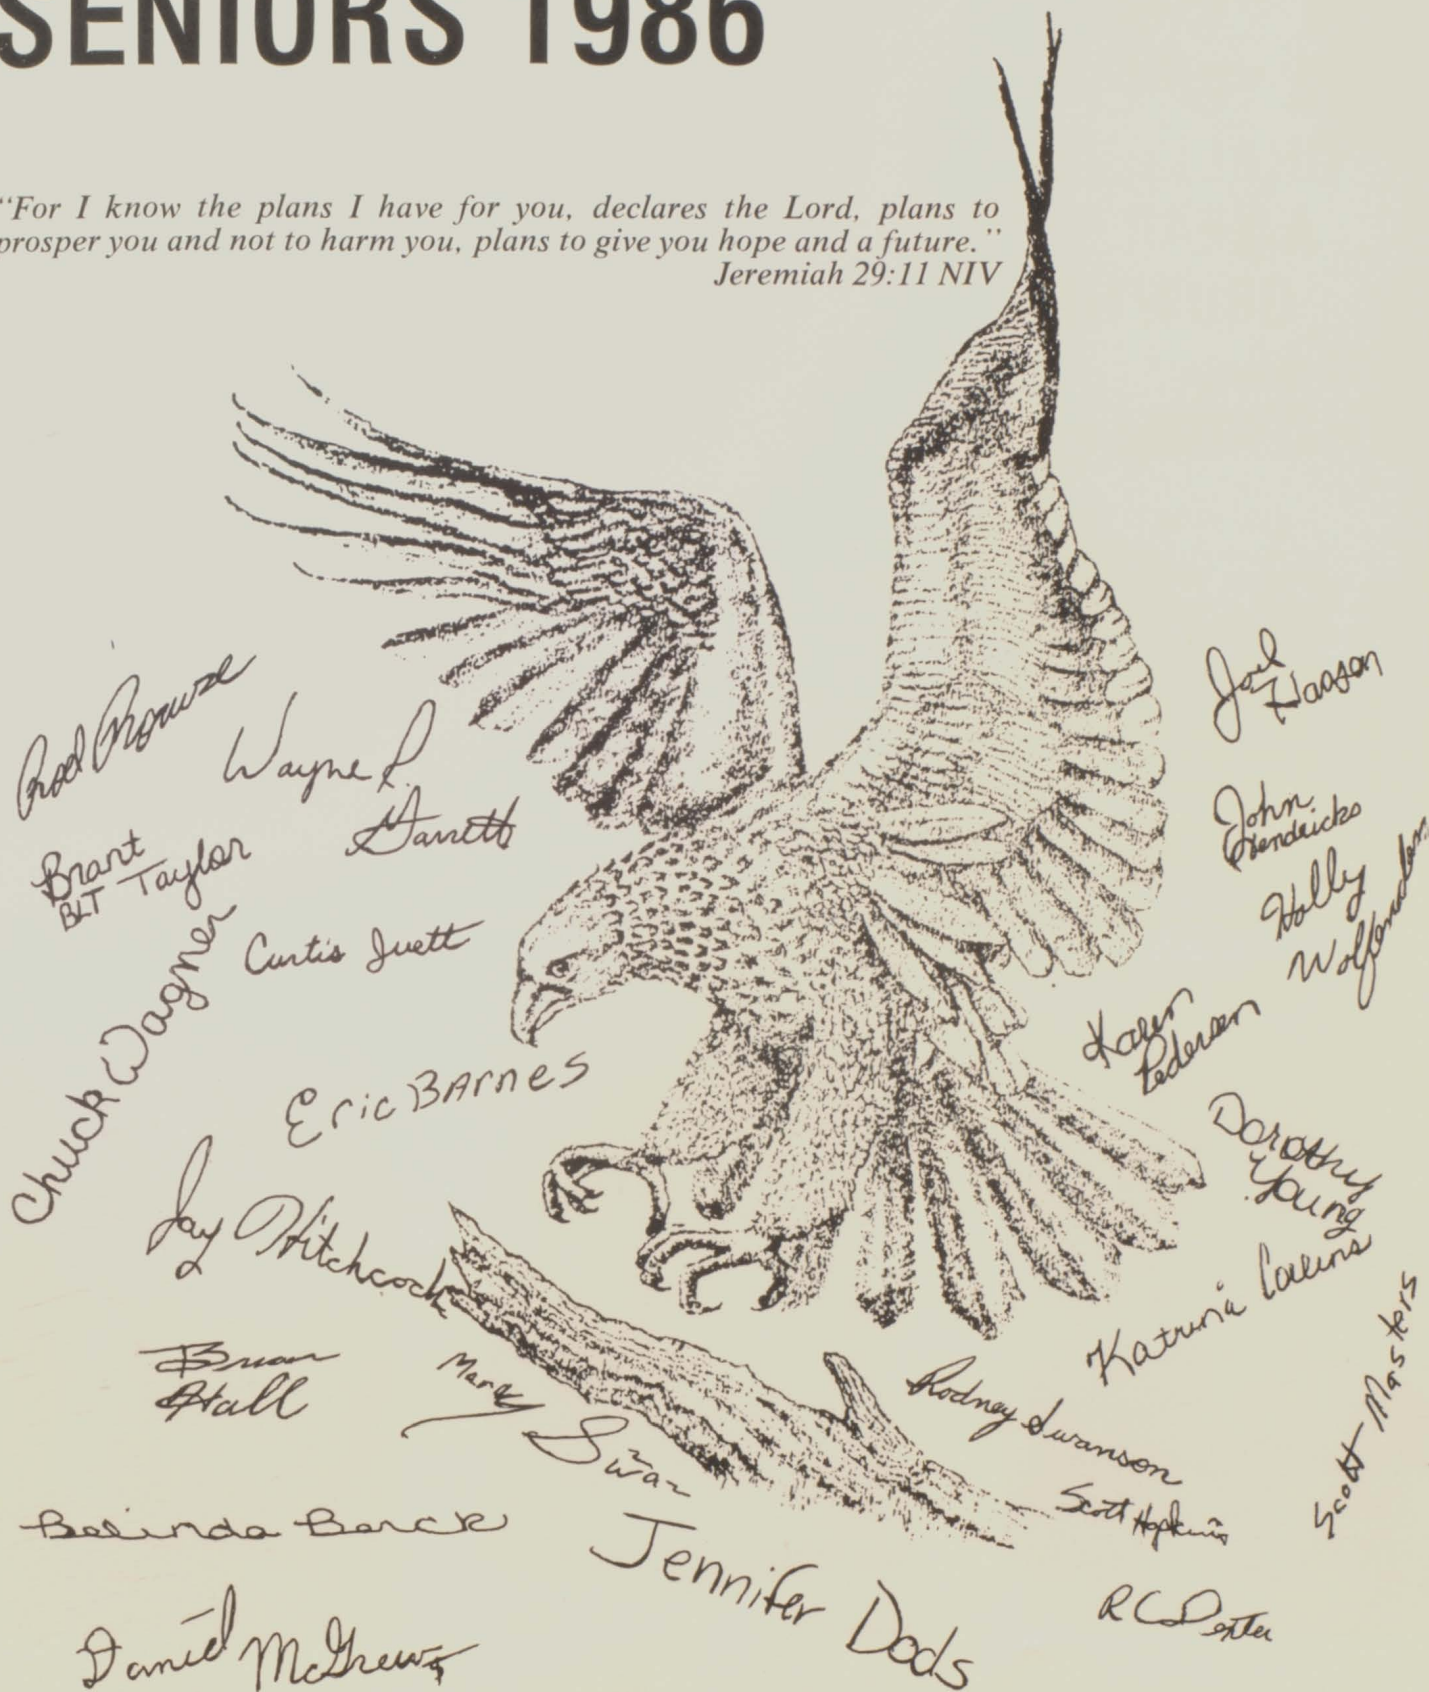 SENIORS 1986
“For I know the plans I have for you, declares the Lord, plans to
prosper you and not to harm you, plans to give you hope and a future.”
Jeremiah 29:11 NIV
Rod
Wayne P.
Garrett
Brant
BLT Taylor
Curtis Juett
Chuck Wagner
Eric BArnes
Jay Hitchcock
Brian
Hall
Mark
Swan
Belinda Barck
Daniel McGrew
Jennifer Dods
Joel
John
Hendricks
Holly
Wolfenden
Karen
Pedersen
Dorothy
Young
Katrina Collins
Scott Masters
Rodney Swanson
Scott Hopkins
R C Dexter